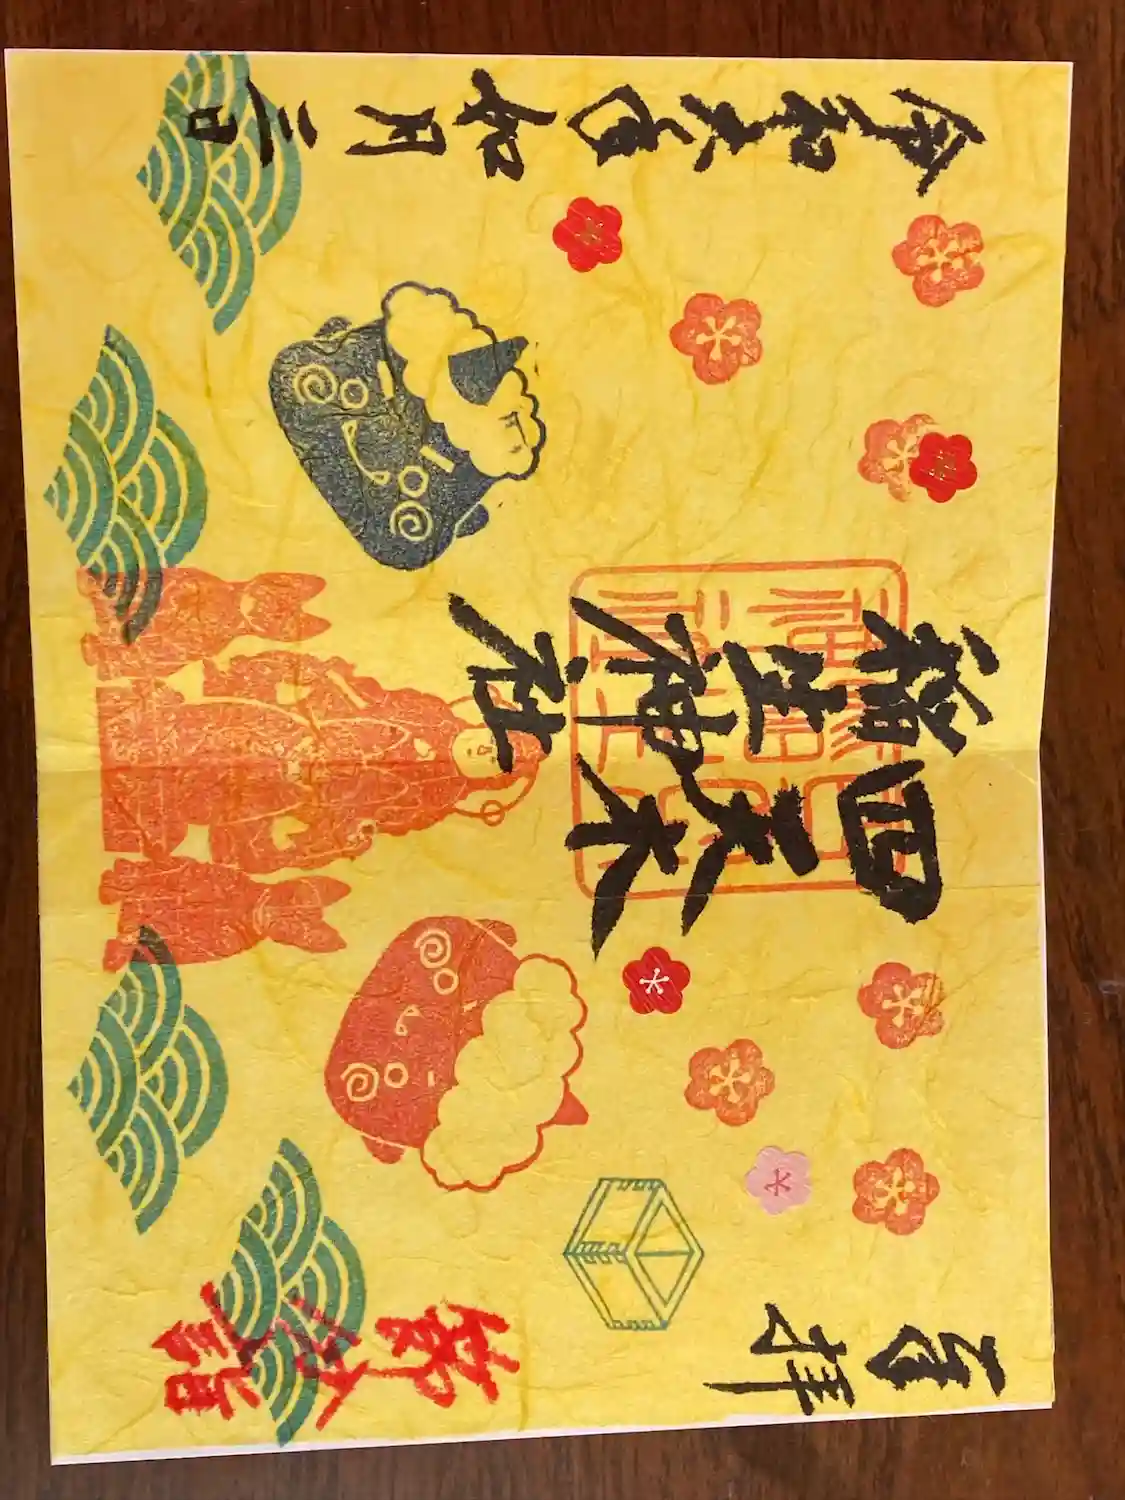 奉拝
節分詣
四天木
稲生神社
令和六年如月三日